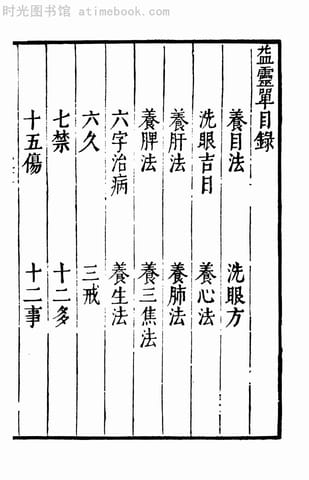 时光图书馆 · atimebook.com
益靈單目錄
養目法 洗眼方
洗眼吉日 養心法
養肝法 養肺法
養脾法 養三焦法
六字治病 養生法
六久 三戒
七禁 十二多
十五傷 十二事